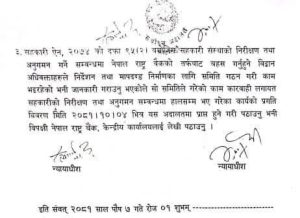 ३. सहकारी ऐन, २०७४ को दफा ९५(२) बमोजिम सहकारी संस्थाको निरीक्षण तथा
अनुगमन गर्ने सम्बन्धमा नेपाल राष्ट्र बैंकको तर्फबाट बहस गर्नुहुने विद्वान
अधिवक्ताहरुले निर्देशन तथा मापदण्ड निर्माणका लागि समिति गठन गरी काम
भइरहेको भनी जानकारी गराउनु भएकोले सो समितिले गरेको काम कारवाही लगायत
सहकारीको निरीक्षण तथा अनुगमन सम्बन्धमा हालसम्म भए गरेका कार्यको प्रगति
विवरण मिति २०८१।१०।०४ भित्र यस अदालतमा प्राप्त हुने गरी पठाउनु भनी
विपक्षी नेपाल राष्ट्र बैंक, केन्द्रीय कार्यालयलाई लेखी पठाउनु ।
न्यायाधीश
न्यायाधीश
इति संवत् २०८१ साल पौष ७ गते रोज ०१ शुभम्